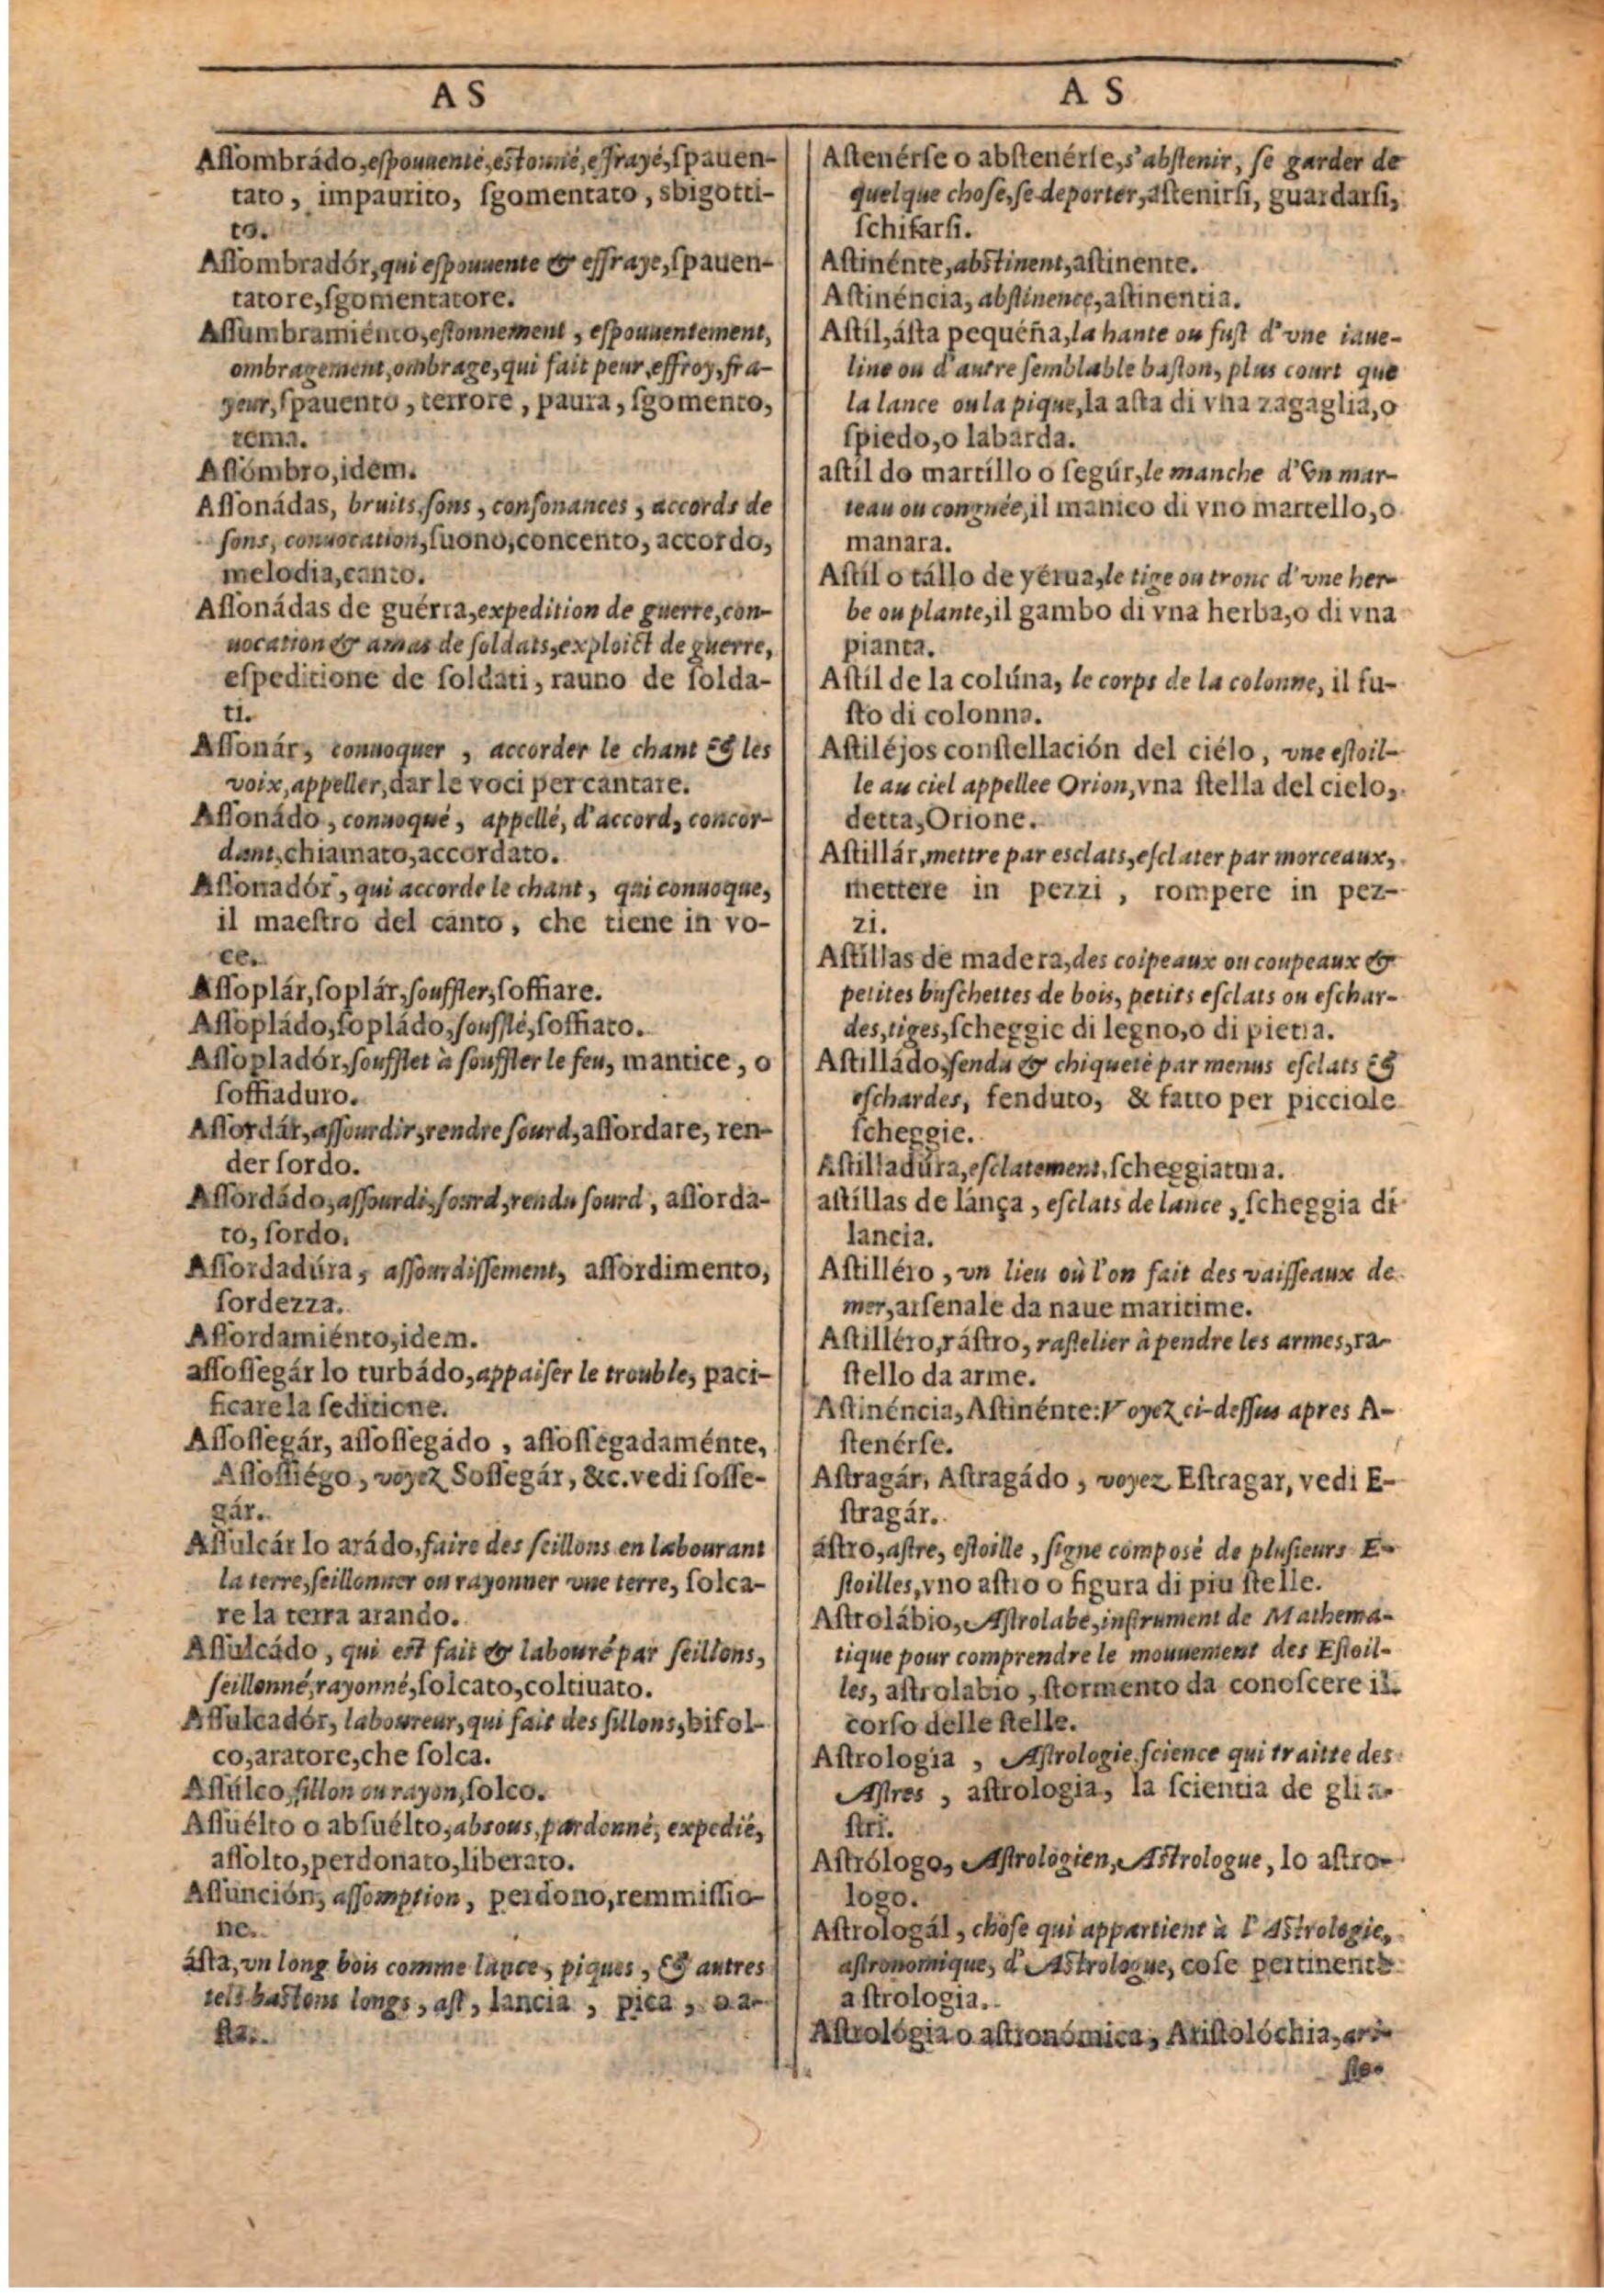 AS
Aſſombrádo, eſpouuenté, eſtonné, effrayé, ſpauen-
tato, impaurito, ſgomentato, sbigotti-
to.
Aſſombradór, qui eſpouuente & effraye, ſpauen-
tatore, ſgomentatore.
Aſſumbramiénto, eſtonnement, eſpouuentement,
ombragement, ombrage, qui fait peur, effroy, fra-
yeur, ſpauento, terrore, paura, ſgomento,
tema.
Aſſómbro, idem.
Aſſonádas, bruits, ſons, conſonances, accords de
ſons, conuocation, ſuono, concento, accordo,
melodia, canto.
Aſſonádas de guérra, expedition de guerre, con-
uocation & amas de ſoldats, exploict de guerre,
eſpeditione de ſoldati, rauno de ſolda-
ti.
Aſſonár, conuoquer, accorder le chant & les
voix, appeller, dar le voci per cantare.
Aſſonádo, conuoqué, appellé, d'accord, concor-
dant, chiamato, accordato.
Aſſonadór, qui accorde le chant, qui conuoque,
il maeſtro del canto, che tiene in vo-
ce.
Aſſoplár, ſoplár, ſouffler, ſoffiare.
Aſſopládo, ſopládo, ſoufflé, ſoffiato.
Aſſopladór, ſoufflet à ſouffler le feu, mantice, o
ſoffiaduro.
Aſſordár, aſſourdir, rendre ſourd, aſſordare, ren-
der ſordo.
Aſſordádo, aſſourdi, ſourd, rendu ſourd, aſſorda-
to, ſordo.
Aſſordadúra, aſſourdiſſement, aſſordimento,
ſordezza.
Aſſordamiénto, idem.
aſſoſſegár lo turbádo, appaiſer le trouble, paci-
ficare la ſeditione.
Aſſoſſegár, aſſoſſegádo, aſſoſſegadaménte,
Aſſoſſiégo, voyez Soſſegár, &c. vedi ſoſſe-
gár.
Aſſulcár lo arádo, faire des ſeillons en labourant
la terre, ſeillonner ou rayonner vne terre, ſolca-
re la terra arando.
Aſſulcádo, qui eſt fait & labouré par ſeillons,
ſeillonné, rayonné, ſolcato, coltiuato.
Aſſulcadór, laboureur, qui fait des ſillons, bifol-
co, aratore, che ſolca.
Aſſúlco, ſillon ou rayon, ſolco.
Aſſuélto o abſuélto, absous, pardonné, expedié,
aſſolto, perdonato, liberato.
Aſſunción, aſſomption, perdono, remmiſſio-
ne.
áſta, vn long bois comme lance, piques, & autres
tels baſtons longs, aſt, lancia, pica, o a-
ſta.
AS
Aſtenérſe o abſtenérſe, s'abſtenir, ſe garder de
quelque choſe, ſe deporter, aſtenirſi, guardarſi,
ſchifarſi.
Aſtinénte, abſtinent, aſtinente.
Aſtinéncia, abſtinence, aſtinentia.
Aſtíl, áſta pequéña, la hante ou fuſt d'vne iaue-
line ou d'autre ſemblable baſton, plus court que
la lance ou la pique, la aſta di vna zagaglia, o
ſpiedo, o labarda.
aſtíl do martíllo o ſegúr, le manche d'vn mar-
teau ou congnée, il manico di vno martello, o
manara.
Aſtíl o tállo de yérua, le tige ou tronc d'vne her-
be ou plante, il gambo di vna herba, o di vna
pianta.
Aſtíl de la colúna, le corps de la colonne, il fu-
ſto di colonna.
Aſtiléjos conſtellación del ciélo, vne eſtoil-
le au ciel appellee Orion, vna ſtella del cielo,
detta, Orione.
Aſtillár, mettre par eſclats, eſclater par morceaux,
mettere in pezzi, rompere in pez-
zi.
Aſtíllas de madera, des coipeaux ou coupeaux &
petites buſchettes de bois, petits eſclats ou eſchar-
des, tiges, ſcheggie di legno, o di pietra.
Aſtilládo, fendu & chiqueté par menus eſclats &
eſchardes, fenduto, & fatto per picciole
ſcheggie.
Aſtilladúra, eſclatement, ſcheggiatura.
aſtíllas de lánça, eſclats de lance, ſcheggia di
lancia.
Aſtilléro, vn lieu où l'on fait des vaiſſeaux de
mer, arſenale da naue maritime.
Aſtilléro, ráſtro, raſtelier à pendre les armes, ra-
ſtello da arme.
Aſtinéncia, Aſtinénte: Voyez ci-deſſus apres A-
ſtenérſe.
Aſtragár, Aſtragádo, voyez Eſtragar, vedi E-
ſtragár.
áſtro, aſtre, eſtoille, ſigne composé de pluſieurs E-
ſtoilles, vno aſtro o figura di piu ſtelle.
Aſtrolábio, Aſtrolabe, inſtrument de Mathema-
tique pour comprendre le mouuement des Eſtoil-
les, aſtrolabio, ſtormento da conoſcere il
corſo delle ſtelle.
Aſtrologia, Aſtrologie, ſcience qui traitte des
Aſtres, aſtrologia, la ſcientia de gli a-
ſtri.
Aſtrólogo, Aſtrologien, Aſtrologue, lo aſtro-
logo.
Aſtrologál, choſe qui appartient à l'Aſtrologie,
aſtronomique, d'Aſtrologue, coſe pertinente
a ſtrologia.
Aſtrológia o aſtronómica, Ariſtolóchia, ari-
ſto-